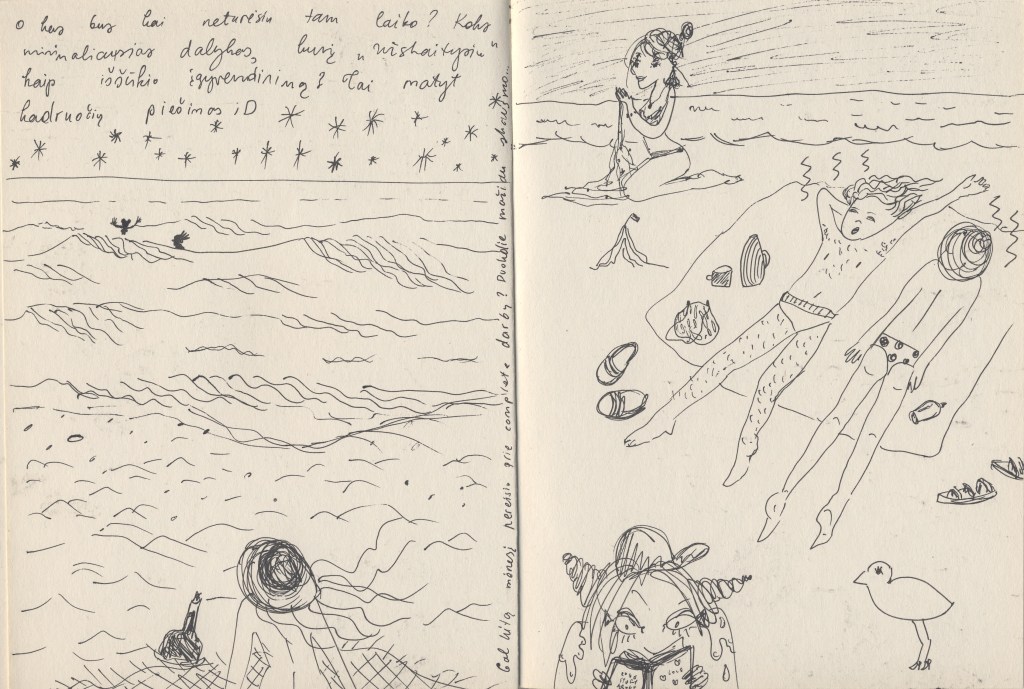 o kas bus kai neturėsiu tam laiko? Koks
minimaliausias dalykas, kurį „užskaitysiu"
kaip iššūkio įgyvendinimą? Tai matyt
kadruočių piešimas ;D
Gal kitą mėnesį pereisiu prie complete darbų? Duokdie mažiau * skausmo...
LOVE